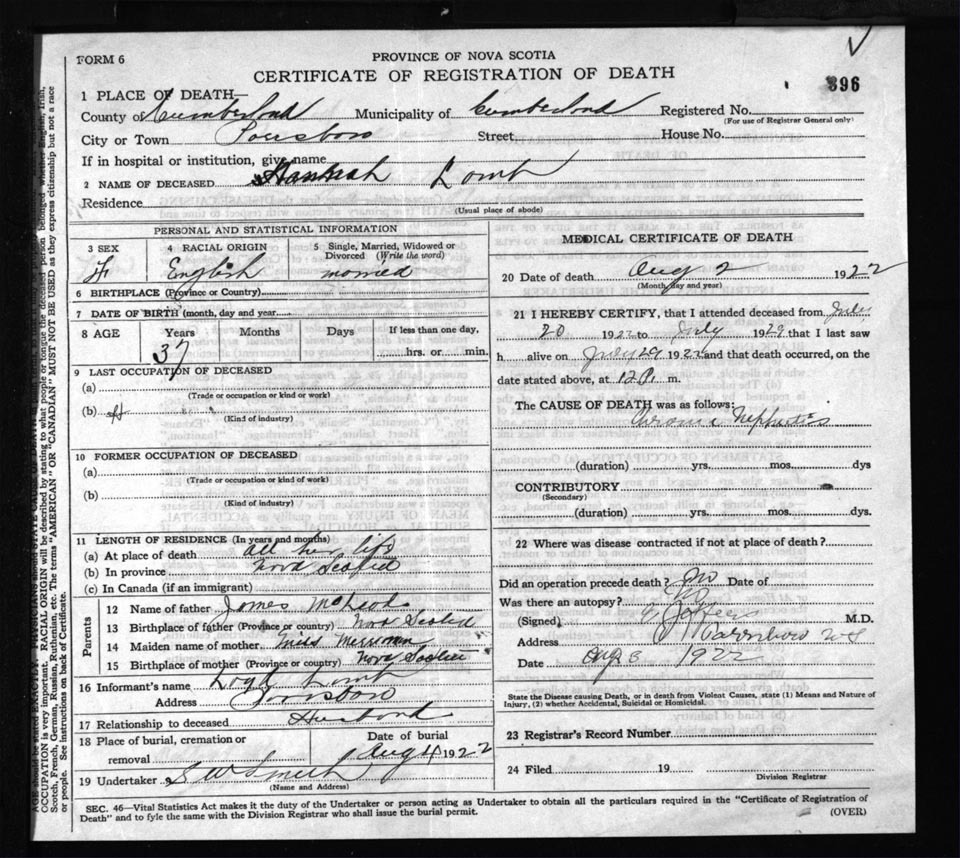 FORM 6
PROVINCE OF NOVA SCOTIA
CERTIFICATE OF REGISTRATION OF DEATH
896
1 PLACE OF DEATH—
County of Cumberland Municipality of Cumberland Registered No.
(For use of Registrar General only)
City or Town Street House No.
If in hospital or institution, give name
2 NAME OF DECEASED Hannah Lamb
Residence
(Usual place of abode)
PERSONAL AND STATISTICAL INFORMATION
3 SEX 4 RACIAL ORIGIN 5 Single, Married, Widowed or Divorced (Write the word)
F English married
6 BIRTHPLACE (Province or Country)
7 DATE OF BIRTH (month, day and year)
8 AGE Years Months Days If less than one day,
37 hrs. or min.
9 LAST OCCUPATION OF DECEASED
(a)
(Trade or occupation or kind or work)
(b) H
(Kind of industry)
10 FORMER OCCUPATION OF DECEASED
(a)
(Trade or occupation or kind or work)
(b)
(Kind of industry)
11 LENGTH OF RESIDENCE (In years and months)
(a) At place of death all her life
(b) In province Nova Scotia
(c) In Canada (if an immigrant)
Parents
12 Name of father James
13 Birthplace of father (Province or country) Nova Scotia
14 Maiden name of mother Miss Merriman
15 Birthplace of mother (Province or country) Nova Scotia
16 Informant's name Lamb
Address
17 Relationship to deceased Husband
18 Place of burial, cremation or removal Date of burial
Aug 4 1922
19 Undertaker S W Smith
(Name and Address)
MEDICAL CERTIFICATE OF DEATH
20 Date of death Aug 2 1922
(Month, day and year)
21 I HEREBY CERTIFY, that I attended deceased from July
20 1922 to July 1929 that I last saw
h alive on July 29 1922 and that death occurred, on
date stated above, at 12 P. m.
The CAUSE OF DEATH was as follows:
Chronic Nephritis
(duration) yrs. mos. dys
CONTRIBUTORY
(Secondary)
(duration) yrs. mos. dys.
22 Where was disease contracted if not at place of death?
Did an operation precede death? No Date of
Was there an autopsy? No
(Signed) M.D.
Address Parrsboro NS
Date Aug 3 1922
State the Disease causing Death, or in death from Violent Causes, state (1) Means and Nature of
Injury, (2) whether Accidental, Suicidal or Homicidal.
23 Registrar's Record Number
24 Filed 19
Division Registrar
SEC. 46—Vital Statistics Act makes it the duty of the Undertaker or person acting as Undertaker to obtain all the particulars required in the "Certificate of Registration of
Death" and to fyle the same with the Division Registrar who shall issue the burial permit.
(OVER)
OCCUPATION is very important. RACIAL ORIGIN will be described by stating to what people or tongue the deceased person belonged whether English, Irish,
Scotch, French, German, Russian, Ruthenian, etc. The terms "AMERICAN" OR "CANADIAN" MUST NOT BE USED as they express citizenship but not a race
or people. See instructions on back of Certificate.